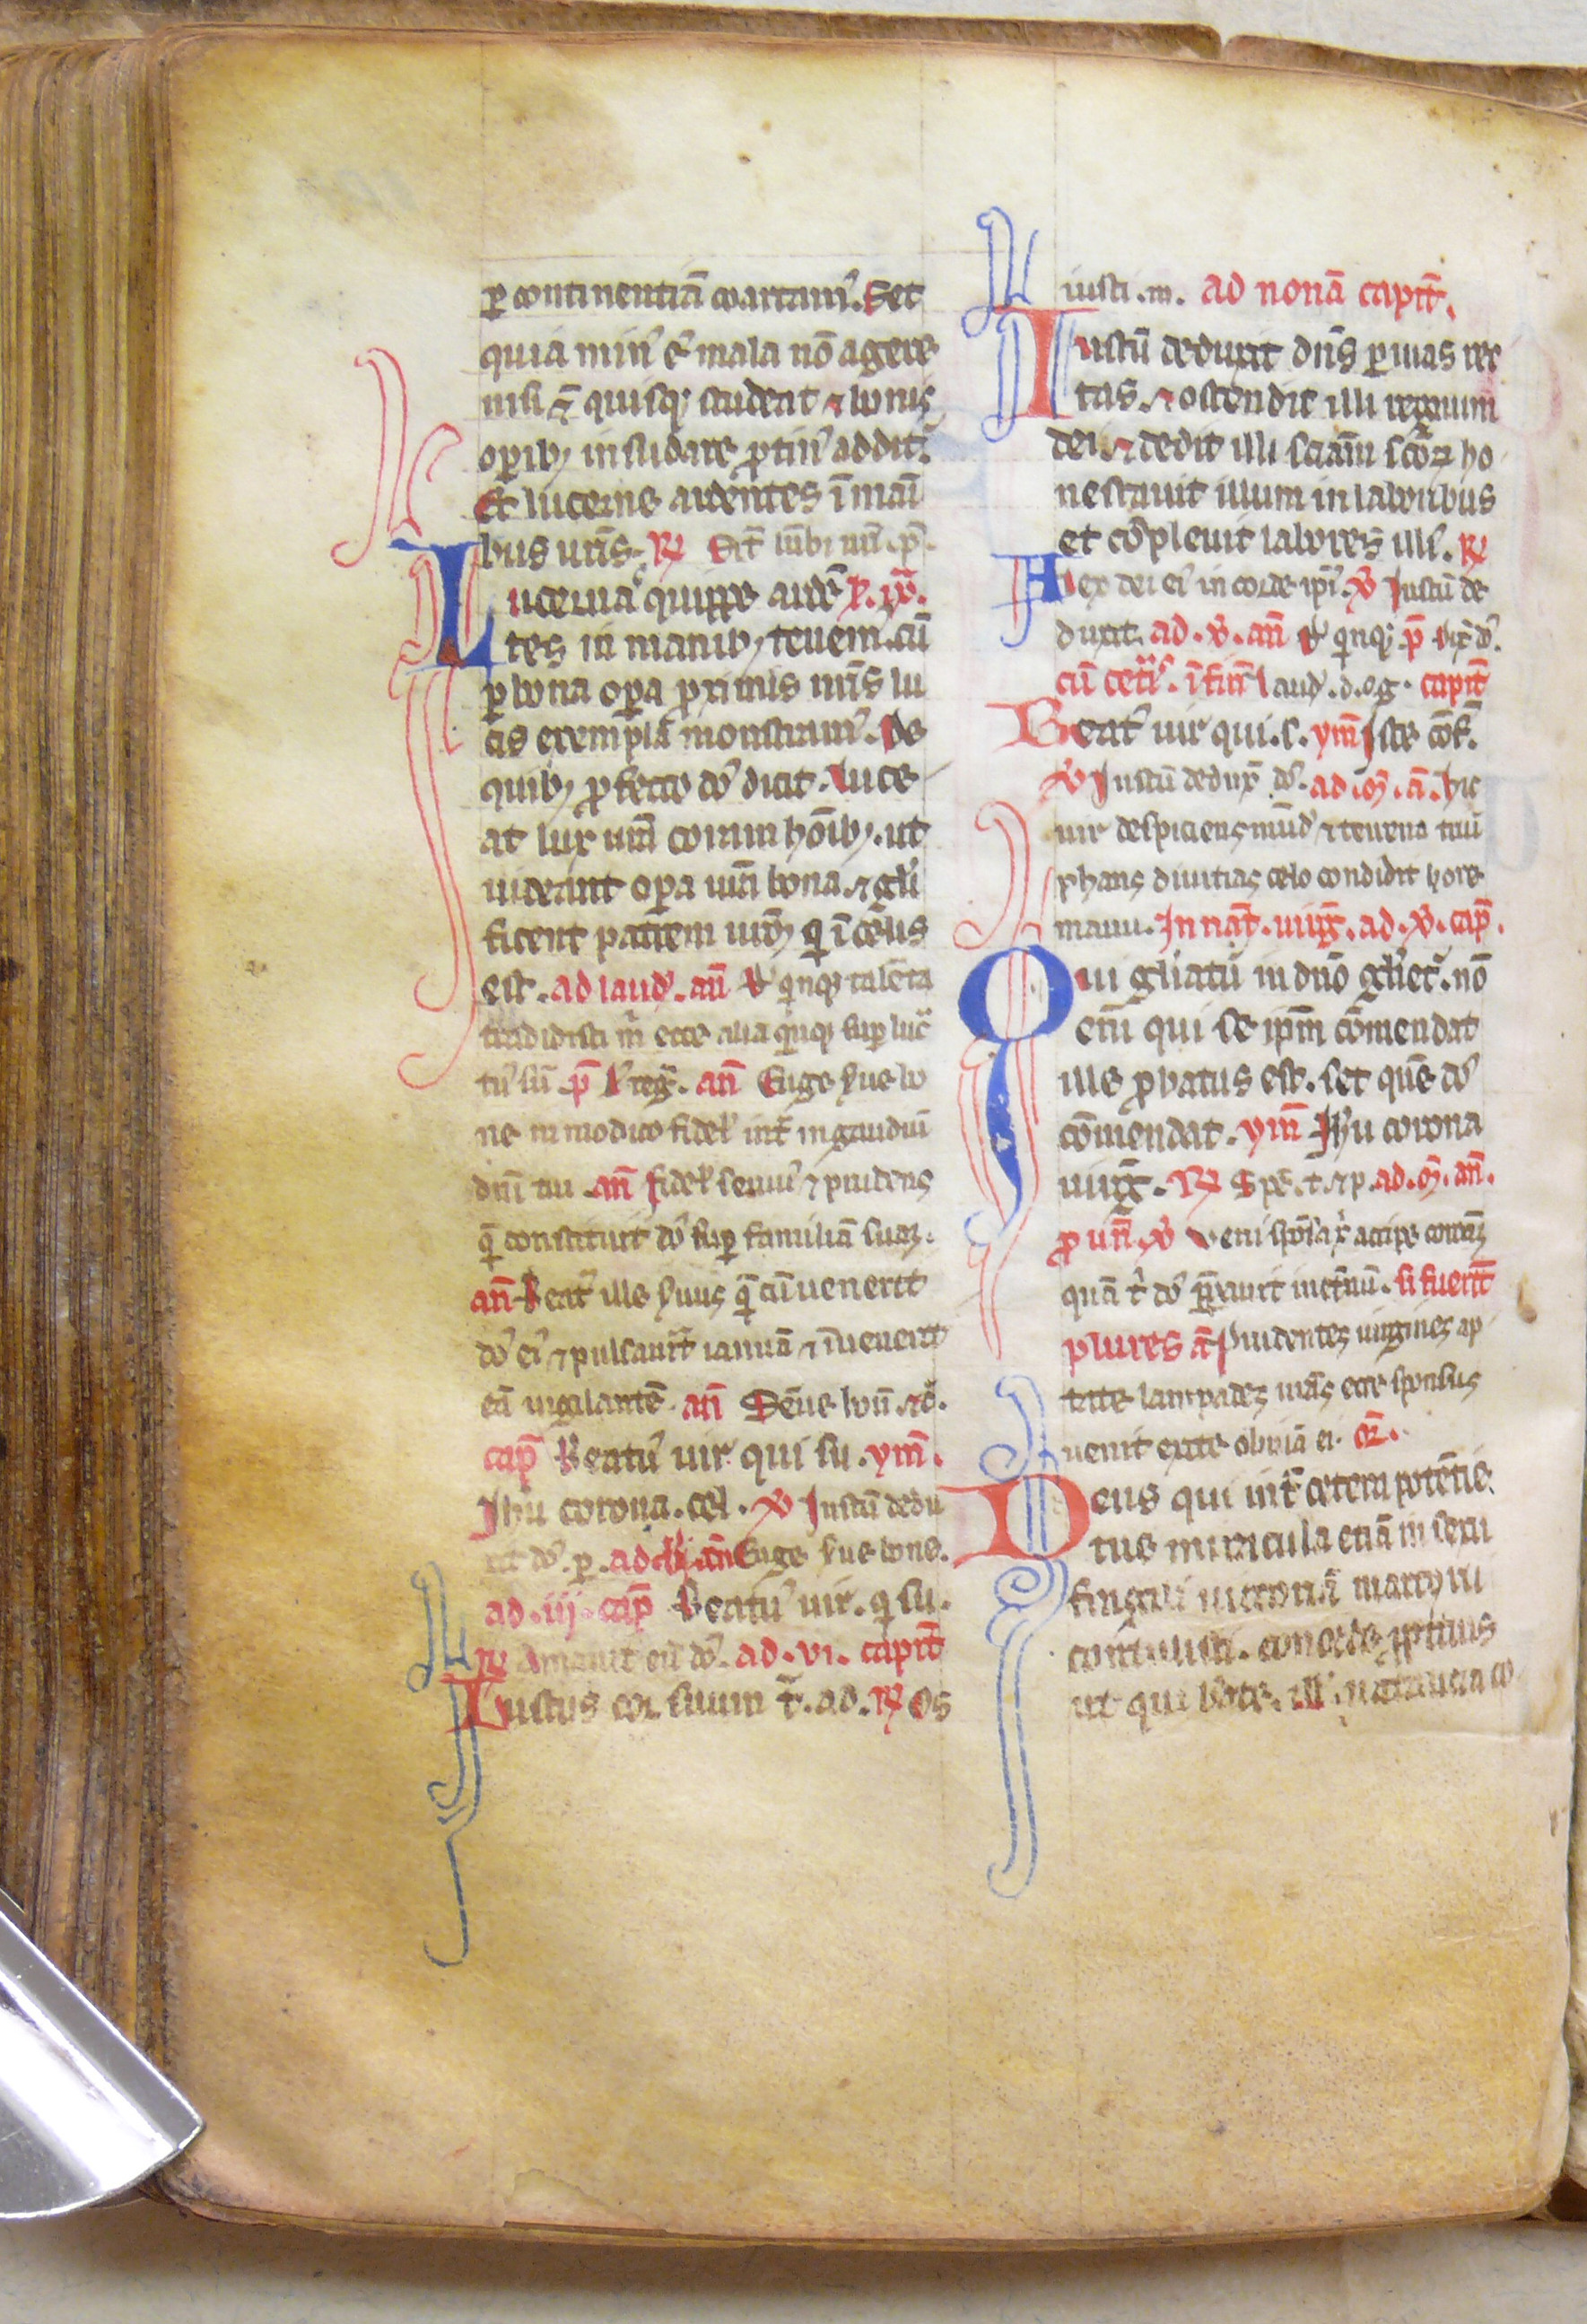 ꝑ continentiā coartam᷒. Set
quia min᷒ ē mala nō agere
nisi ⁊̄ quisqꝫ studeat ⁊ bonis
oꝑibꝫ insudare ꝓtin᷒ addit᷑.
Et lucerne ardentes ī mani
bus ur̄is. ℟ Sīt lūbi uri. p̄.
Lucernas quippe ardē
tes in manibꝫ tenem᷒. cū
ꝑ bona oꝑa ꝓximis nr̄is lu
cis exempla monstram᷒. De
quibꝫ ꝓfecto dn̄s dicit. Luce
at lux ur̄a coram hōibꝫ. ut
uideant oꝑa ur̄a bona. ⁊ glī
ficent patrem ur̄m qui ī celis
est. ad laud᷒. an̄ Dn̄e qinqꝫ talēta
tradidisti m̄ ecce alia qinqꝫ suꝑ luc̄
tus sū. p̄ D. reḡ. an̄ Euge serue bo
ne in modico fidel᷒ int̄ in gaudiū
dn̄i tui. an̄ Fidel᷒ seruus ⁊ prudens
q̄ constituit dn̄s suꝑ familiā suaꝫ.
an̄ Beatus ille seruus q̄ cū uenerit
dn̄s ei᷒ ⁊ pulsauīt ianuā ⁊ īuenerit
eū uigilantē. an̄ Serue bon̄ ⁊c̄.
cap̄ Beatus uir qui su. ym̄.
Ihu corona. cel. ℣ Iustū dedu
xit dn̄s. p. ad. an̄ Euge serue bone.
ad. iij. cap̄ Beatus uir. q su.
℟ Amauit eū dn̄s. ad. vi. capit̄
Iustus cor suum t̄. ad. ℟ Os
iusti. m. ad nonā capit̄.
Iustū deduxit dn̄s ꝑ uias rec
tas. ⁊ ostendit illi regnum
dei. ⁊ dedit illi sciām scōꝝ ho
nestauit illum in laboribus
et cōpleuit labores illi᷒. ℟
Lex dei ei᷒ in corde ipi᷒. ℣ Iustū de
duxit. ad. ℣. an̄ Dn̄e qinqꝫ. p̄ Dix̄ dn̄s.
cū cet̄is. ī fin̄ Laud᷒. d. o. g. capit̄
Beat᷒ uir qui. s. ym̄ Iste cōf.
℣ Iustū dedux̄ dn̄s. ad. m̄. a. Hic
uir despiciens mūd᷒ ⁊ terrena triū
phans diuitias celo condidit hore
manu. In nat̄. uirg̅. ad. ℣. cap̄.
Qui gliatur in dn̄o gliet᷑. nō
enī qui se ipm̄ cōmendat
ille ꝓbatus est. set quē dn̄s
cōmendat. ym̄ Ihu corona
uirg̅. ℟ Spē. t. ⁊ p. ad. m̄. an̄.
ꝓ un̄. ℣ Veni spōsa xi accipe coronā
quā t̄ dn̄s p̄ꝑauit inet̄nū. si fuerīt
plures an̄ Prudentes uirgines ap
tate lampades ur̄as ecce sponsus
uenit exite obuiā ei. oꝛ̄.
Deus qui int̄ cetera potētie
tue miracula etiā in sexu
fragili uictoriā martyrii
contulisti. concede ꝓpitius
ut qui bēate. ill᷒ natalicia co